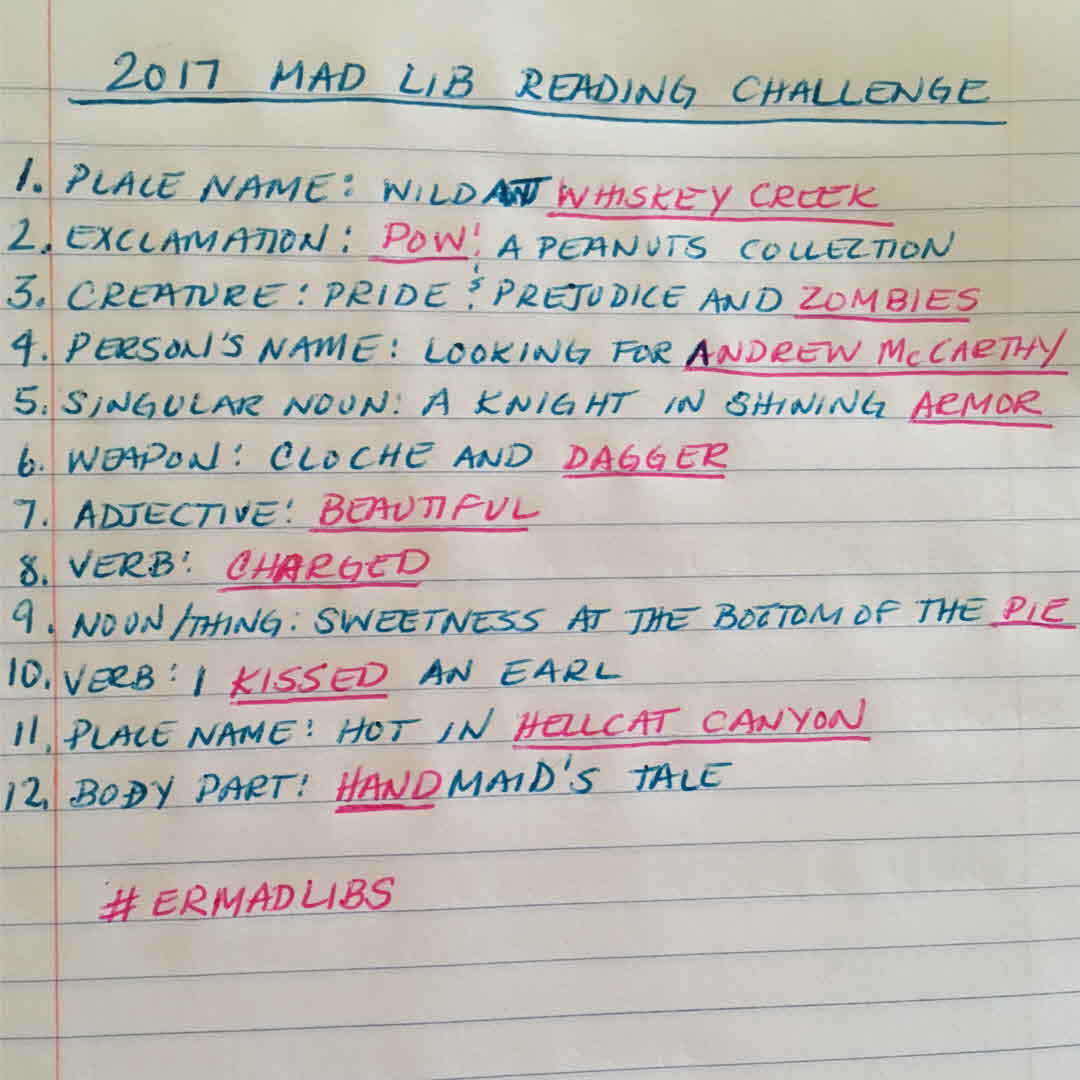 2017 MAD LIB READING CHALLENGE
1. PLACE NAME: WILD AT WHISKEY CREEK
2. EXCLAMATION: POW! A PEANUTS COLLECTION
3. CREATURE: PRIDE & PREJUDICE AND ZOMBIES
4. PERSON'S NAME: LOOKING FOR ANDREW McCARTHY
5. SINGULAR NOUN: A KNIGHT IN SHINING ARMOR
6. WEAPON: CLOCHE AND DAGGER
7. ADJECTIVE: BEAUTIFUL
8. VERB: CHARGED
9. NOUN/THING: SWEETNESS AT THE BOTTOM OF THE PIE
10. VERB: I KISSED AN EARL
11. PLACE NAME: HOT IN HELLCAT CANYON
12. BODY PART: HANDMAID'S TALE
# ERMADLIBS